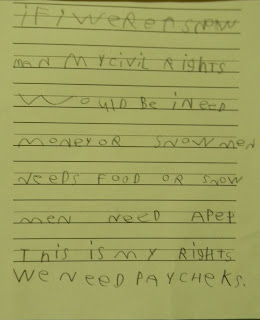 iF i WERE A SNOW
mAN MY CiViL Rights
WOULD BE iNEED
mONEY OR SNOWmEN
NEEDS FOOD OR SNOW
mEN NEED APEt
This is mY RigHts
WE NEED PAYCHEKS.